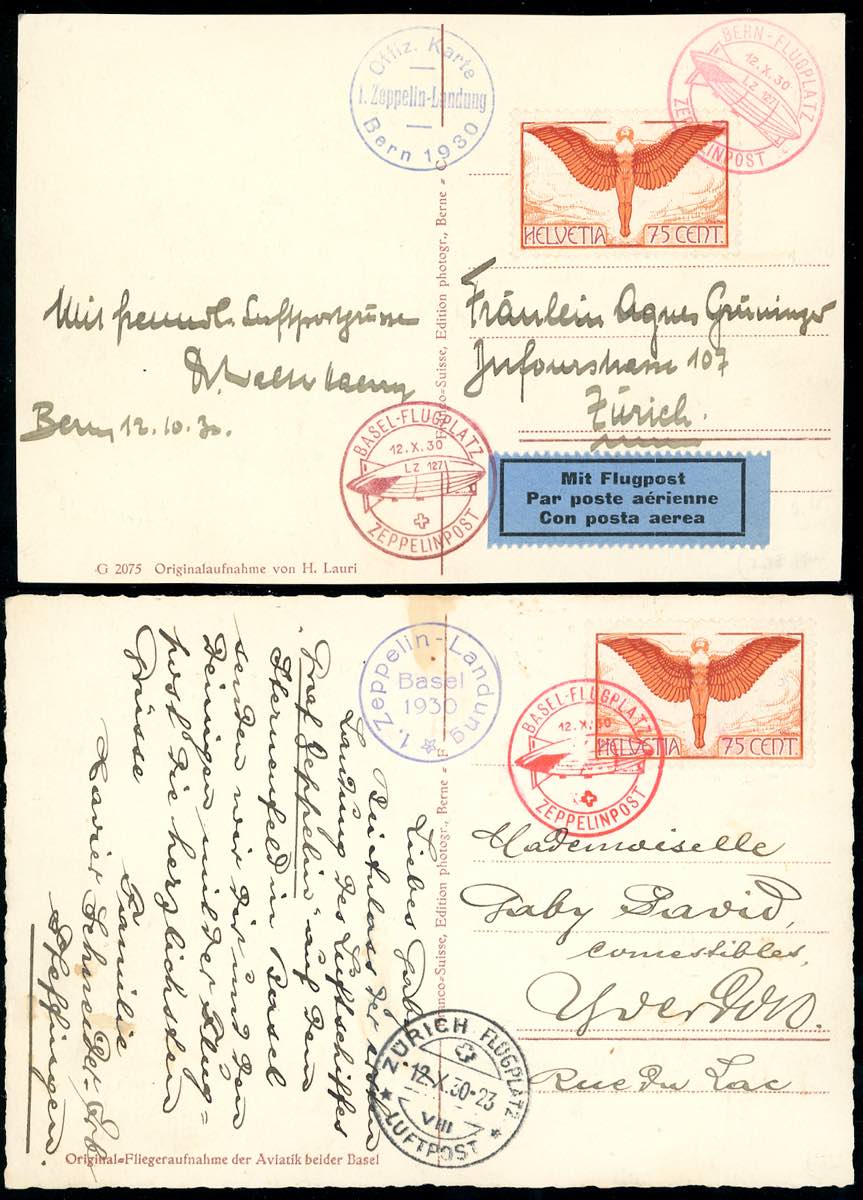 Offiz. Karte
1. Zeppelin-Landung
Bern 1930
BERN-FLUGPLATZ
12.X.30
LZ 127
ZEPPELINPOST
HELVETIA 75 CENT.
Mit freundl. Luftpostgrüssen
Dr. Walter
Bern 12.10.30.
Fräulein Agnes Grüninger
107
Zürich.
BASEL-FLUGPLATZ
12.X.30
LZ 127
ZEPPELINPOST
Mit Flugpost
Par poste aérienne
Con posta aerea
Franco-Suisse, Edition photogr., Berne
G 2075 Originalaufnahme von H. Lauri
1. Zeppelin-Landung
Basel
1930
BASEL-FLUGPLATZ
12.X.30
ZEPPELINPOST
HELVETIA 75 CENT.
Liebes
der ersten
Landung des Luftschiffes
"Graf Zeppelin" auf dem
Sternenfeld in Basel
senden wir Dir und den
Deinigen mit der Flug-
post die herzlichsten
Grüsse
Familie
Xavier Schneider-Erb
Pfeffingen.
Mademoiselle
Gaby David,
comestibles,
Yverdon.
Rue du Lac
ZÜRICH FLUGPLATZ
12.X.30-23
VIII
LUFTPOST
Franco-Suisse, Edition photogr., Berne
Original-Fliegeraufnahme der Aviatik beider Basel